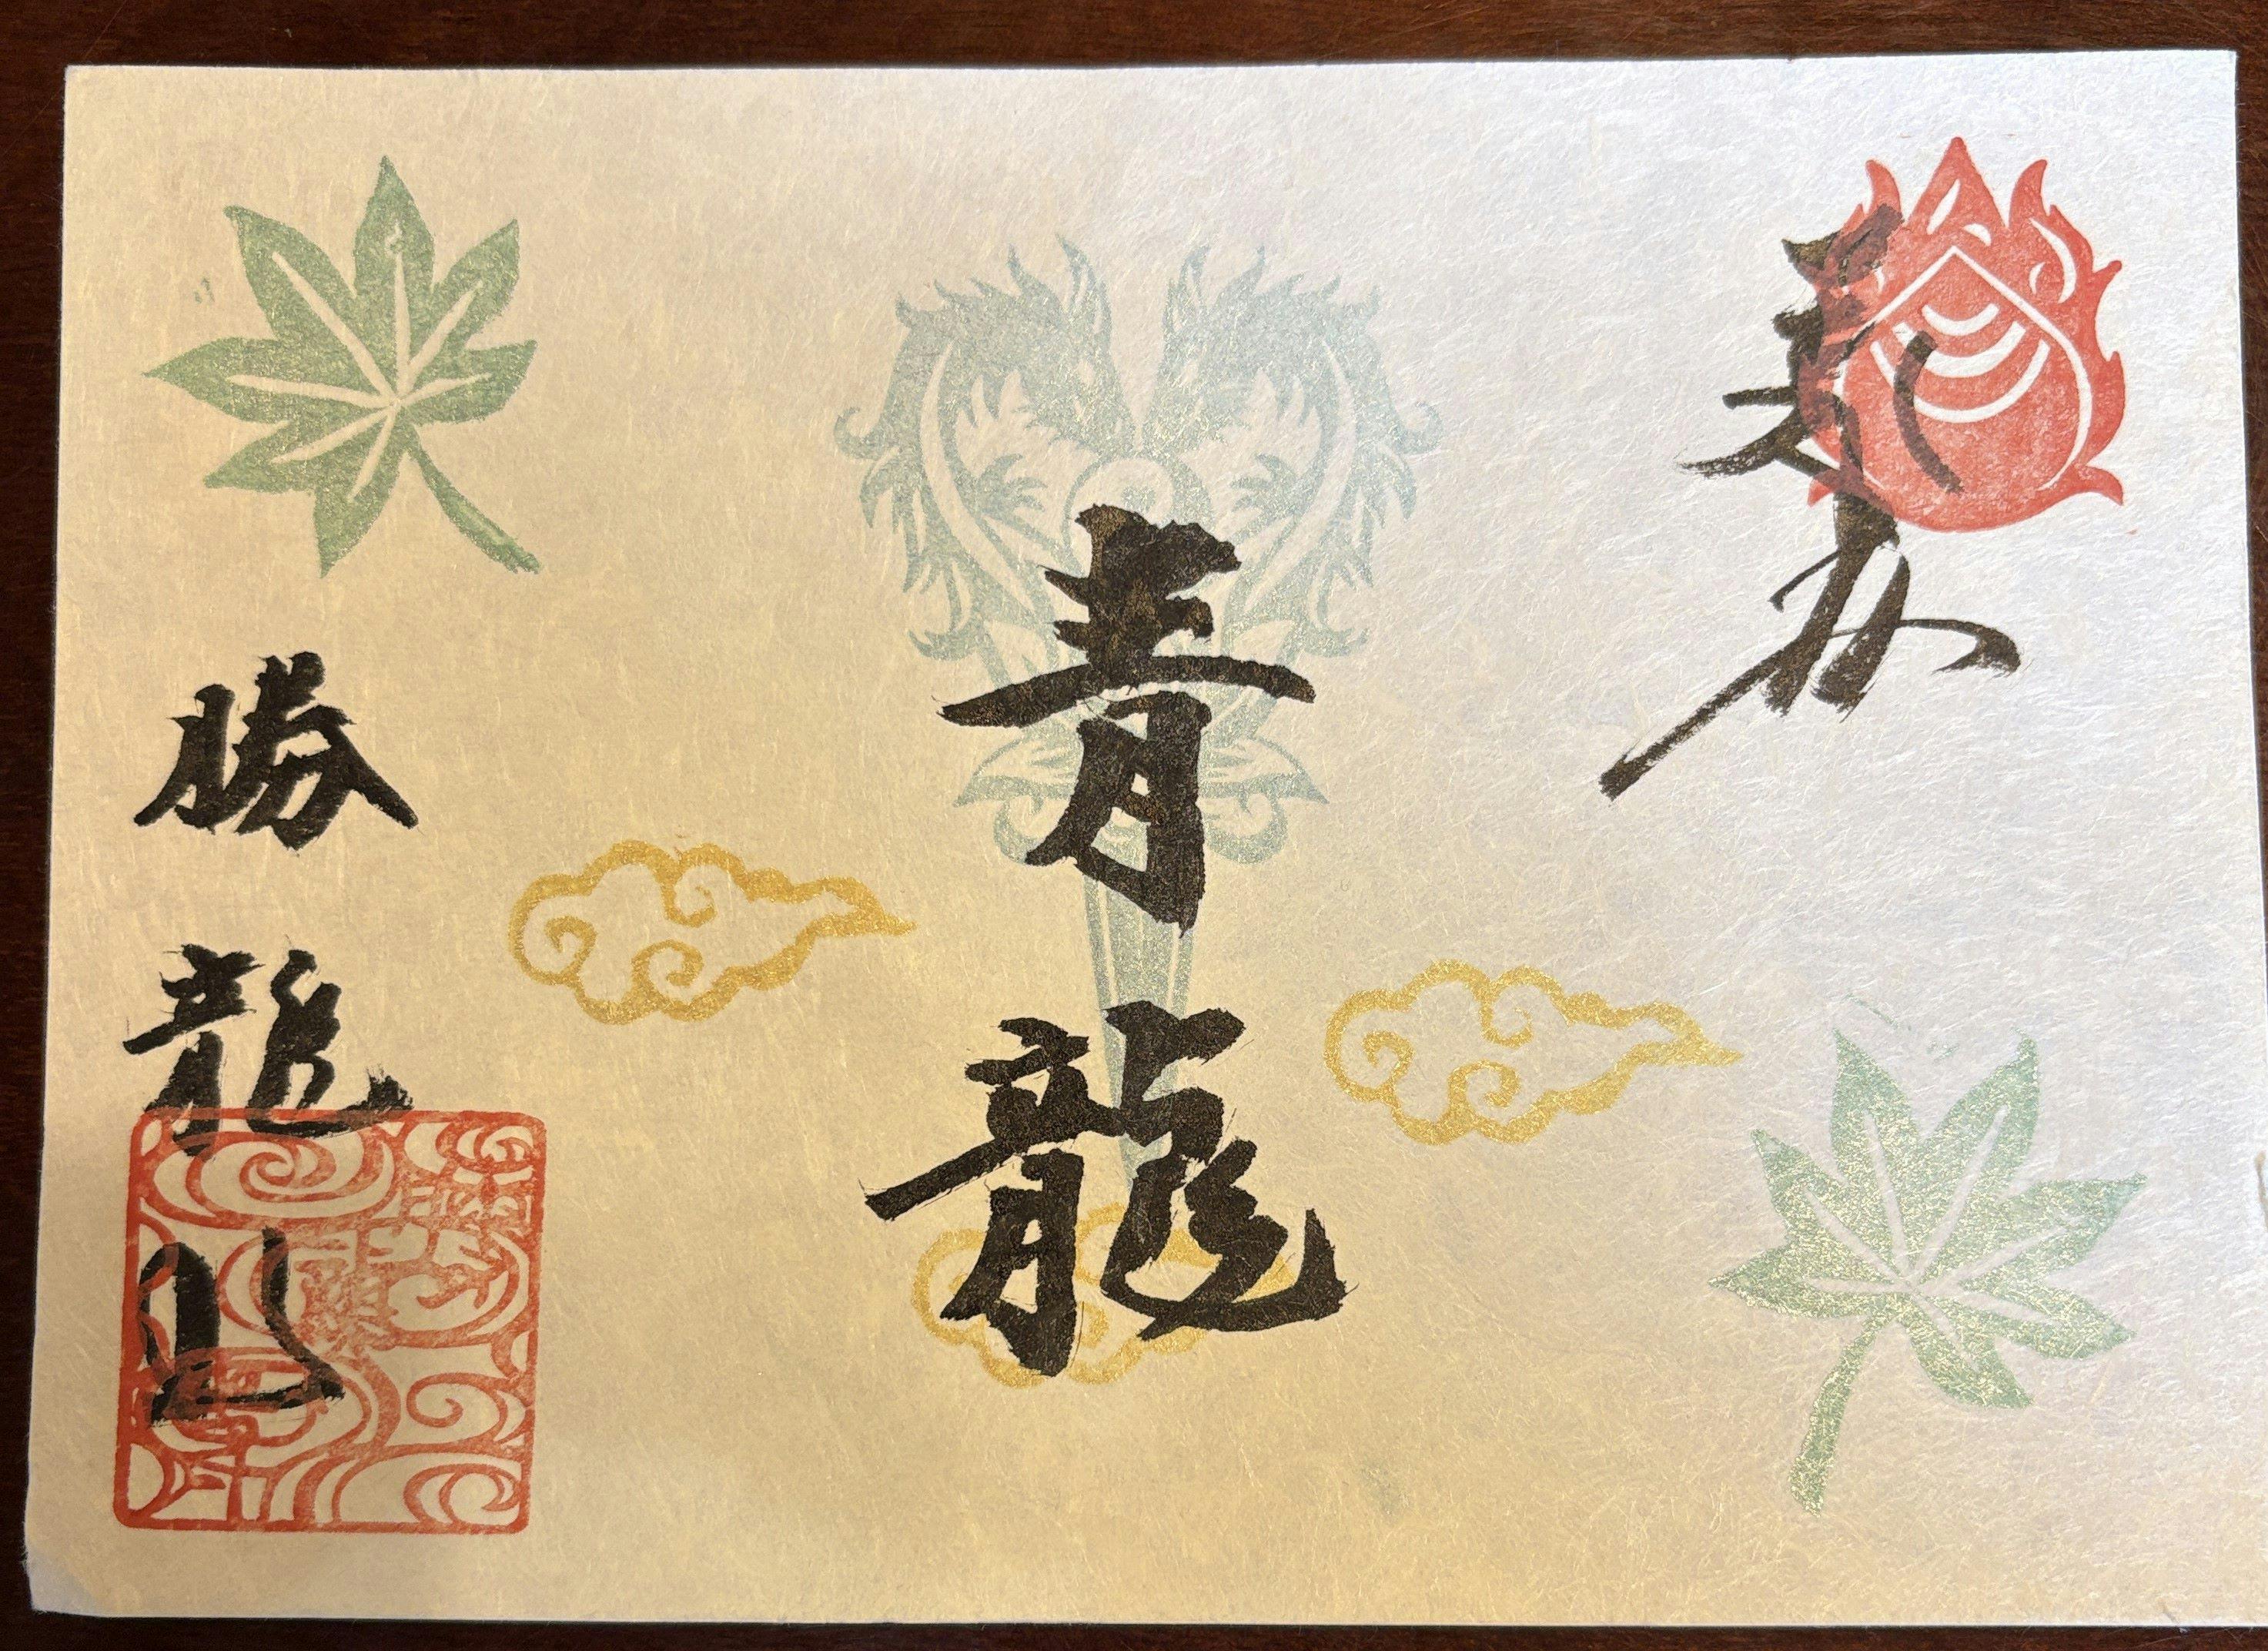 奉拝
青龍
勝龍山